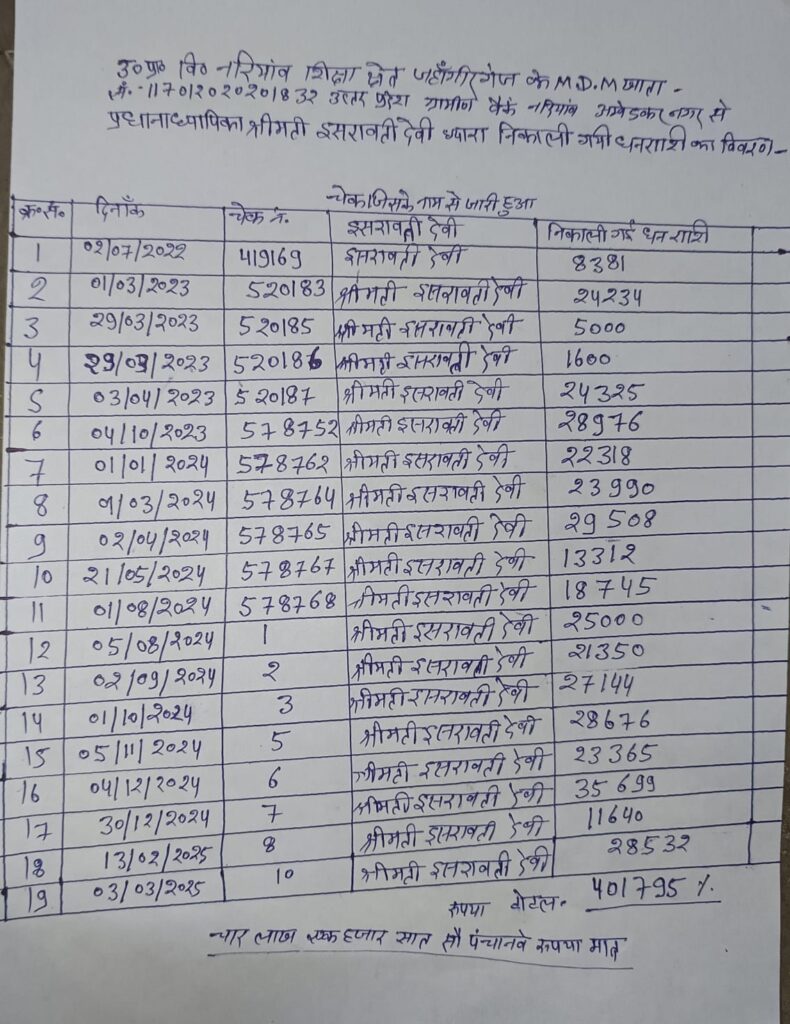 उ० प्रा० वि० नरियांव शिक्षा क्षेत्र जहाँगीरगंज के M.D.M खाता -
सं.-117012020201832 उत्तर प्रदेश ग्रामीण बैंक नरियांव अम्बेडकर नगर से
प्रधानाध्यापिका श्रीमती इसरावती देवी ध्दारा निकाली गयी धनराशी का विवरण -
क्र०सं० दिनाँक चेक नं. चेक जिसके नाम से जारी हुआ निकाली गई धन राशी
इसरावती देवी
1 02/07/2022 419169 इसरावती देवी 8381
2 01/03/2023 520183 श्रीमती इसरावती देवी 24234
3 29/03/2023 520185 श्रीमती इसरावती देवी 5000
4 29/03/2023 520186 श्रीमती इसरावती देवी 1600
5 03/04/2023 520187 श्रीमती इसरावती देवी 24325
6 04/10/2023 578752 श्रीमती इसरावती देवी 28976
7 01/01/2024 578762 श्रीमती इसरावती देवी 22318
8 01/03/2024 578764 श्रीमती इसरावती देवी 23990
9 02/04/2024 578765 श्रीमती इसरावती देवी 29508
10 21/05/2024 578767 श्रीमती इसरावती देवी 13312
11 01/08/2024 578768 श्रीमती इसरावती देवी 18745
12 05/08/2024 1 श्रीमती इसरावती देवी 25000
13 02/09/2024 2 श्रीमती इसरावती देवी 21350
14 01/10/2024 3 श्रीमती इसरावती देवी 27144
15 05/11/2024 5 श्रीमती इसरावती देवी 28676
16 04/12/2024 6 श्रीमती इसरावती देवी 23365
17 30/12/2024 7 श्रीमती इसरावती देवी 35699
18 13/02/2025 8 श्रीमती इसरावती देवी 11640
19 03/03/2025 10 श्रीमती इसरावती देवी 28532
रुपया टोटल- 401795 /.
चार लाख एक हजार सात सौ पंचानवे रुपया मात्र